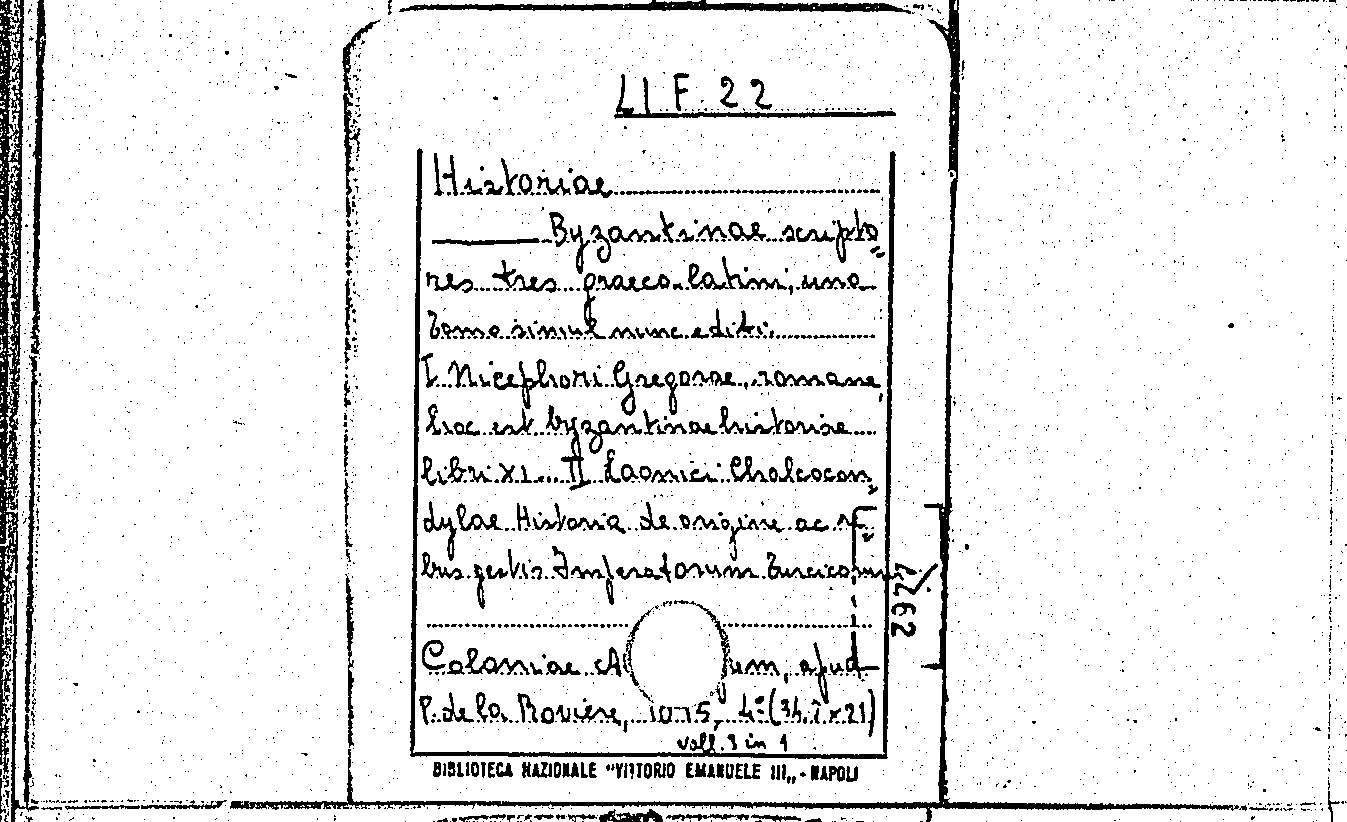 LI F 22
Historiae
Byzantinae scripto
res tres graeco-latini, uno
Tomo simul nunc editi.
I. Nicephori Gregorae, romane,
hoc est byzantinae historiae
libri XI... II Laonici Chalcocon
dylae Historia de origine ac re
bus gestis Imperatorum Turcicorum
Coloniae A um, apud
P. de la Rovière, 4º (34. x 21)
voll. 3 in 1
BIBLIOTECA NAZIONALE "VITTORIO EMANUELE III„ - NAPOLI